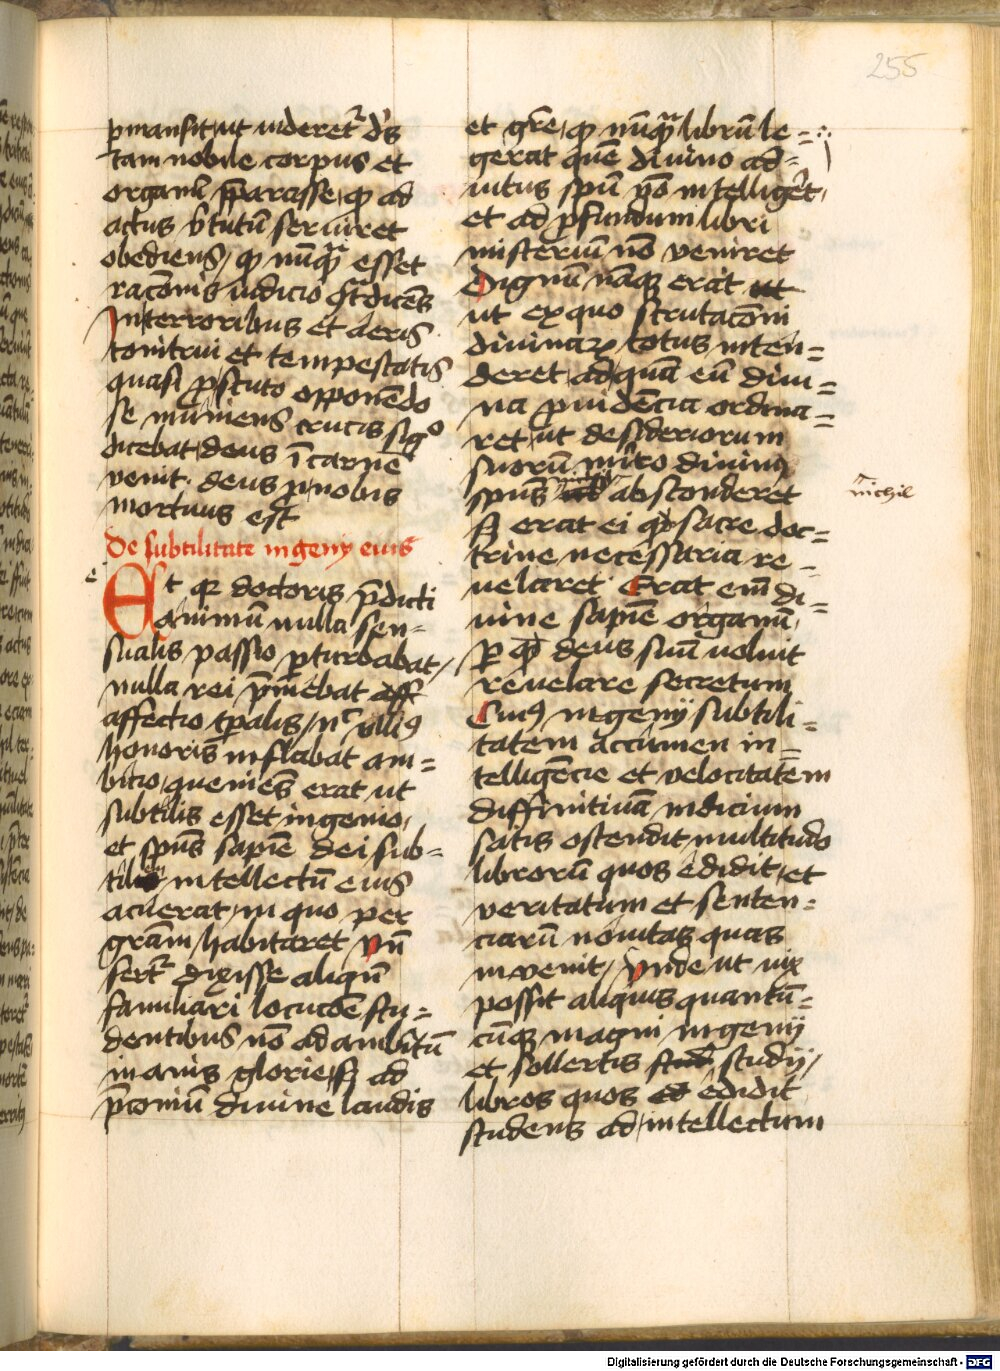 255
p̲mansit ut videret᷑ d's
tam nobile corpus et
organū p̄parasse, ꝙ ad
actus v̓tutū seruiret
obediens, ꝙ nūq̄ꝫ esset
rac̄onis iudicio ꝯt̄dicēs
In terroribus et aeris
tonitrui et tempestatis
quasi ꝓ scuto opponēdo
se muniens crucis sigº
dicebat, deus ī carne
venit. deus pro nobis
mortuus est
De subtilitate ingenij eius
e
Et qꝛ doctoris p̄dicti
animum nulla sen-
sualis passio ꝑturbabat,
nulla rei p̄mebat aff
affectio tp̄alis, nᶜ ulliꝰ
honoris inflabat am=
bitio, ꝯueniēs erat ut
subtilis esset ingenio,
et sp̄us sapīe dei sub=
tilis intellectū eius
acuerat, in quo per
grām habitaret vn̄
fert᷑ dixisse aliqn̄
familiari locuc̄oe stu=
dentibus nō ad ambitū
inanis glorie, sꝫ ad
p̄conium divine laudis
et gr̄e, ꝙ nūq̄ꝫ librū le=
gerat quē divino ad=
iutus spū nō intelligēt,
et ad ꝓfundum libri
misterium nō veniret
Dignū nāqꝫ erat ut
ut ex quo scrutac̄oni
divinaꝝ totus inten=
deret, ad quā eū divi=
na ꝓuidēcia ordina=
ret, ut desideriorum
suorū mīto divinꝰ
spūs nichil absconderet
nichil
sꝫ erat ei qd̄ sacre doc=
trine necessaria re-
uelaret. Erat em̄ di=
uine sapīe organū,
ꝑ qd̄ deus suū uoluit
reuelare secretum
Cuiꝰ ingenij subtili=
tatem accumen in=
telligēcie et velocitatem
diffinitiuā iudicium
satis ostendit, multitudo
librorū quos edidit, et
veritatum et senten=
ciarū nouitas quas
invenit, vnde ut vix
possit aliquis quantū=
cūqꝫ magni ingenij
et sollertis stud studij,
libros quos ed edidit
studens ad intellectum
Digitalisierung gefördert durch die Deutsche Forschungsgemeinschaft - DFG